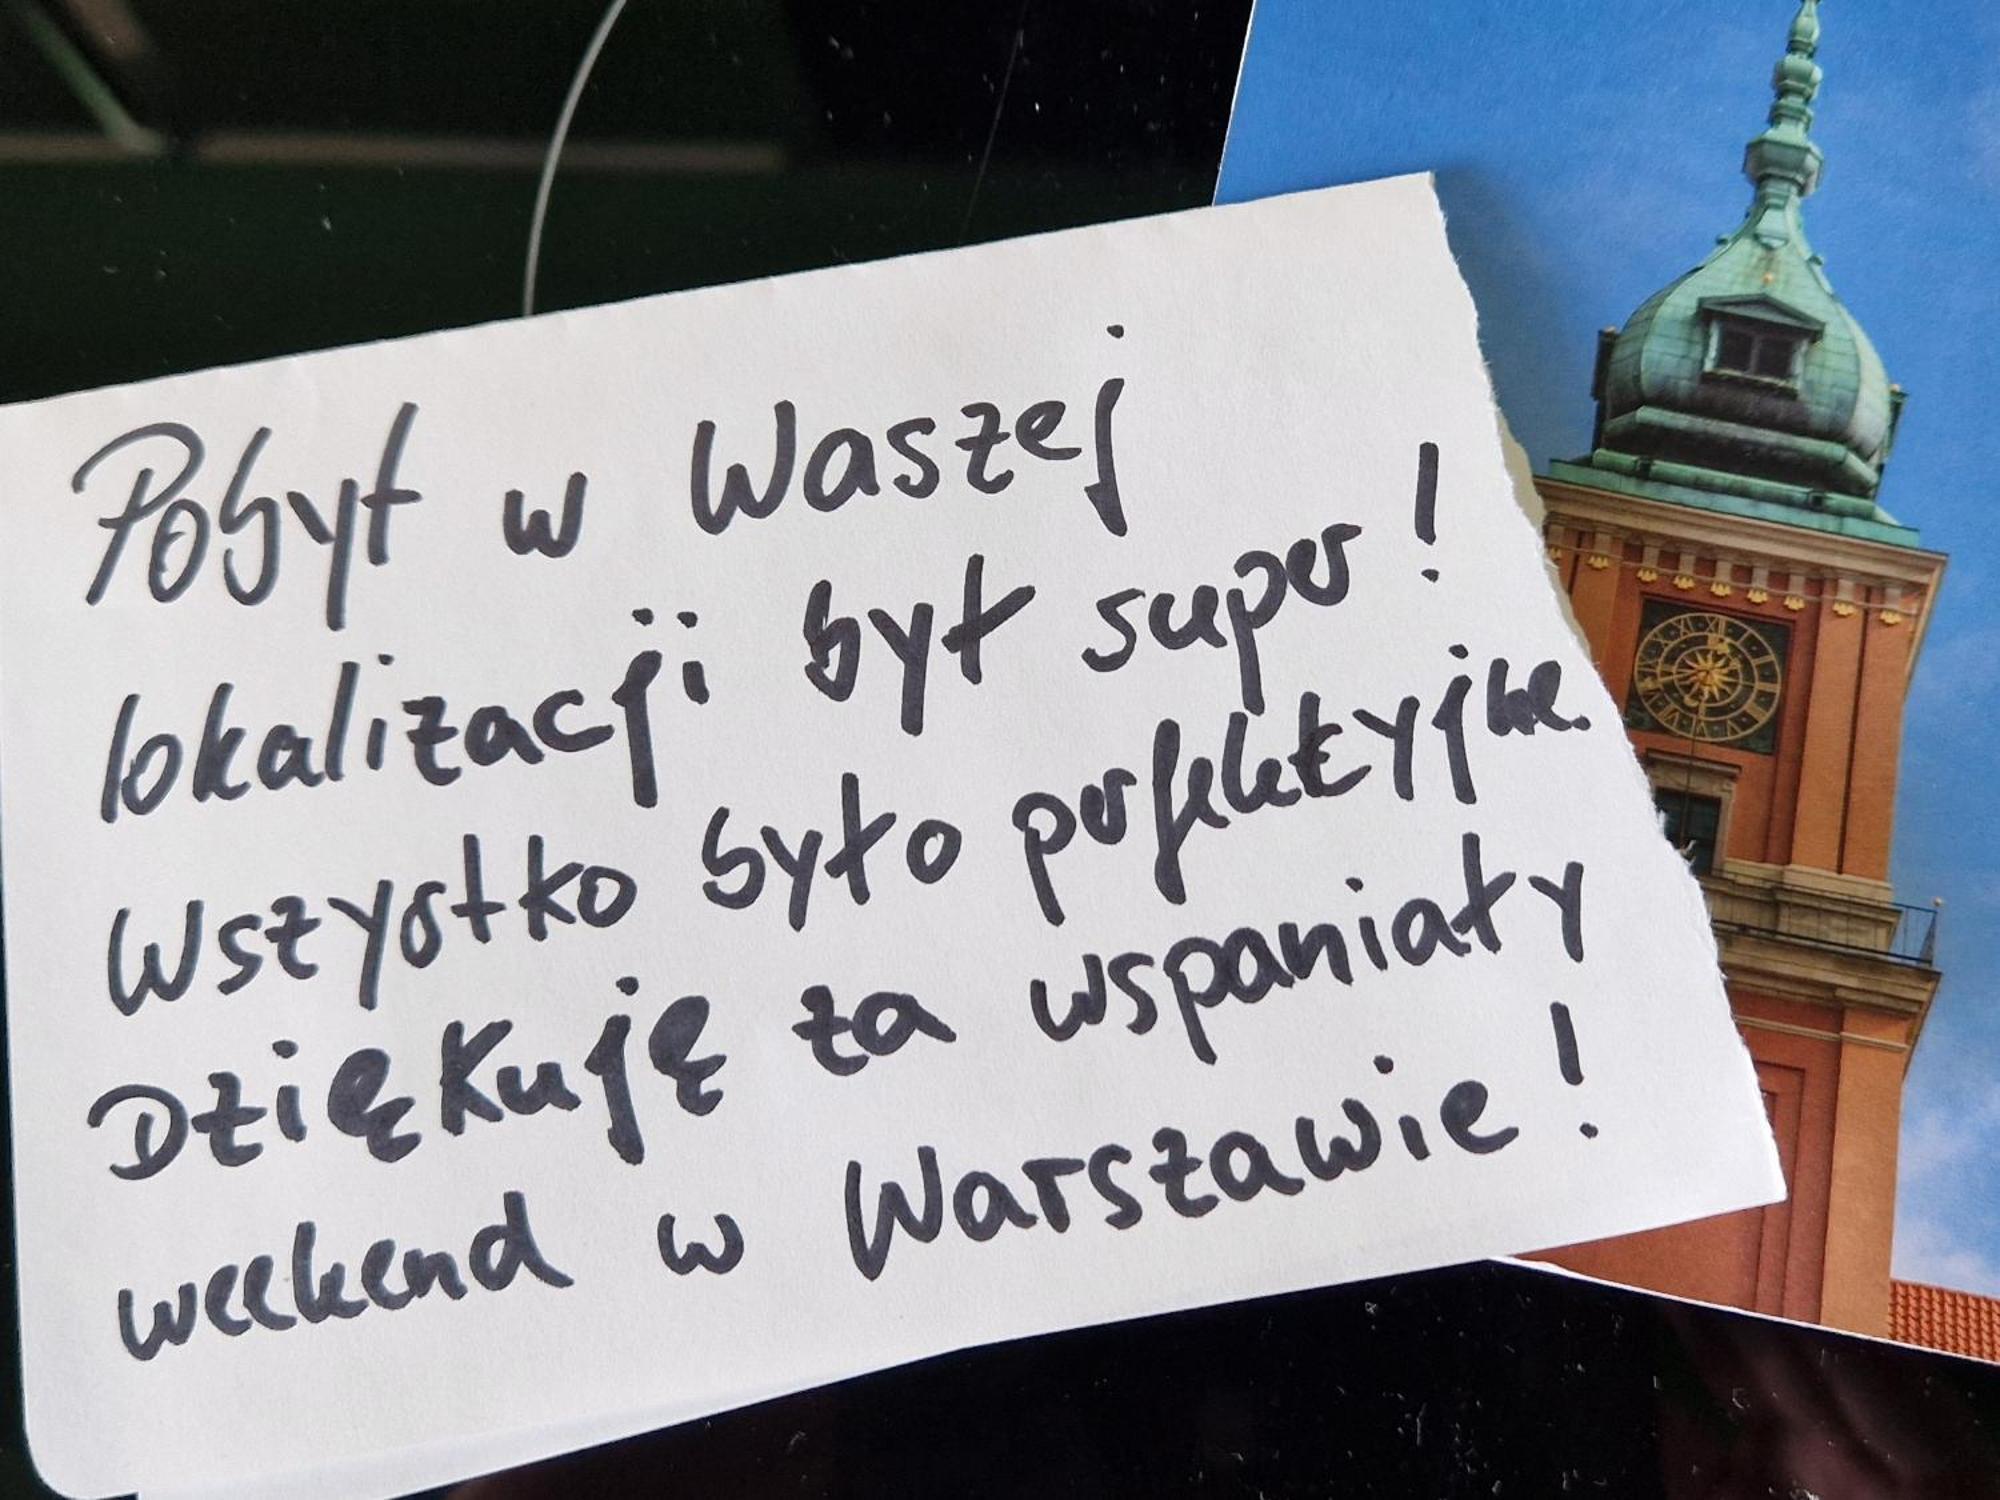 Pobyt w Waszej
lokalizacji był super!
Wszystko było perfektyjne.
Dziękuję za wspaniały
weekend w Warszawie!